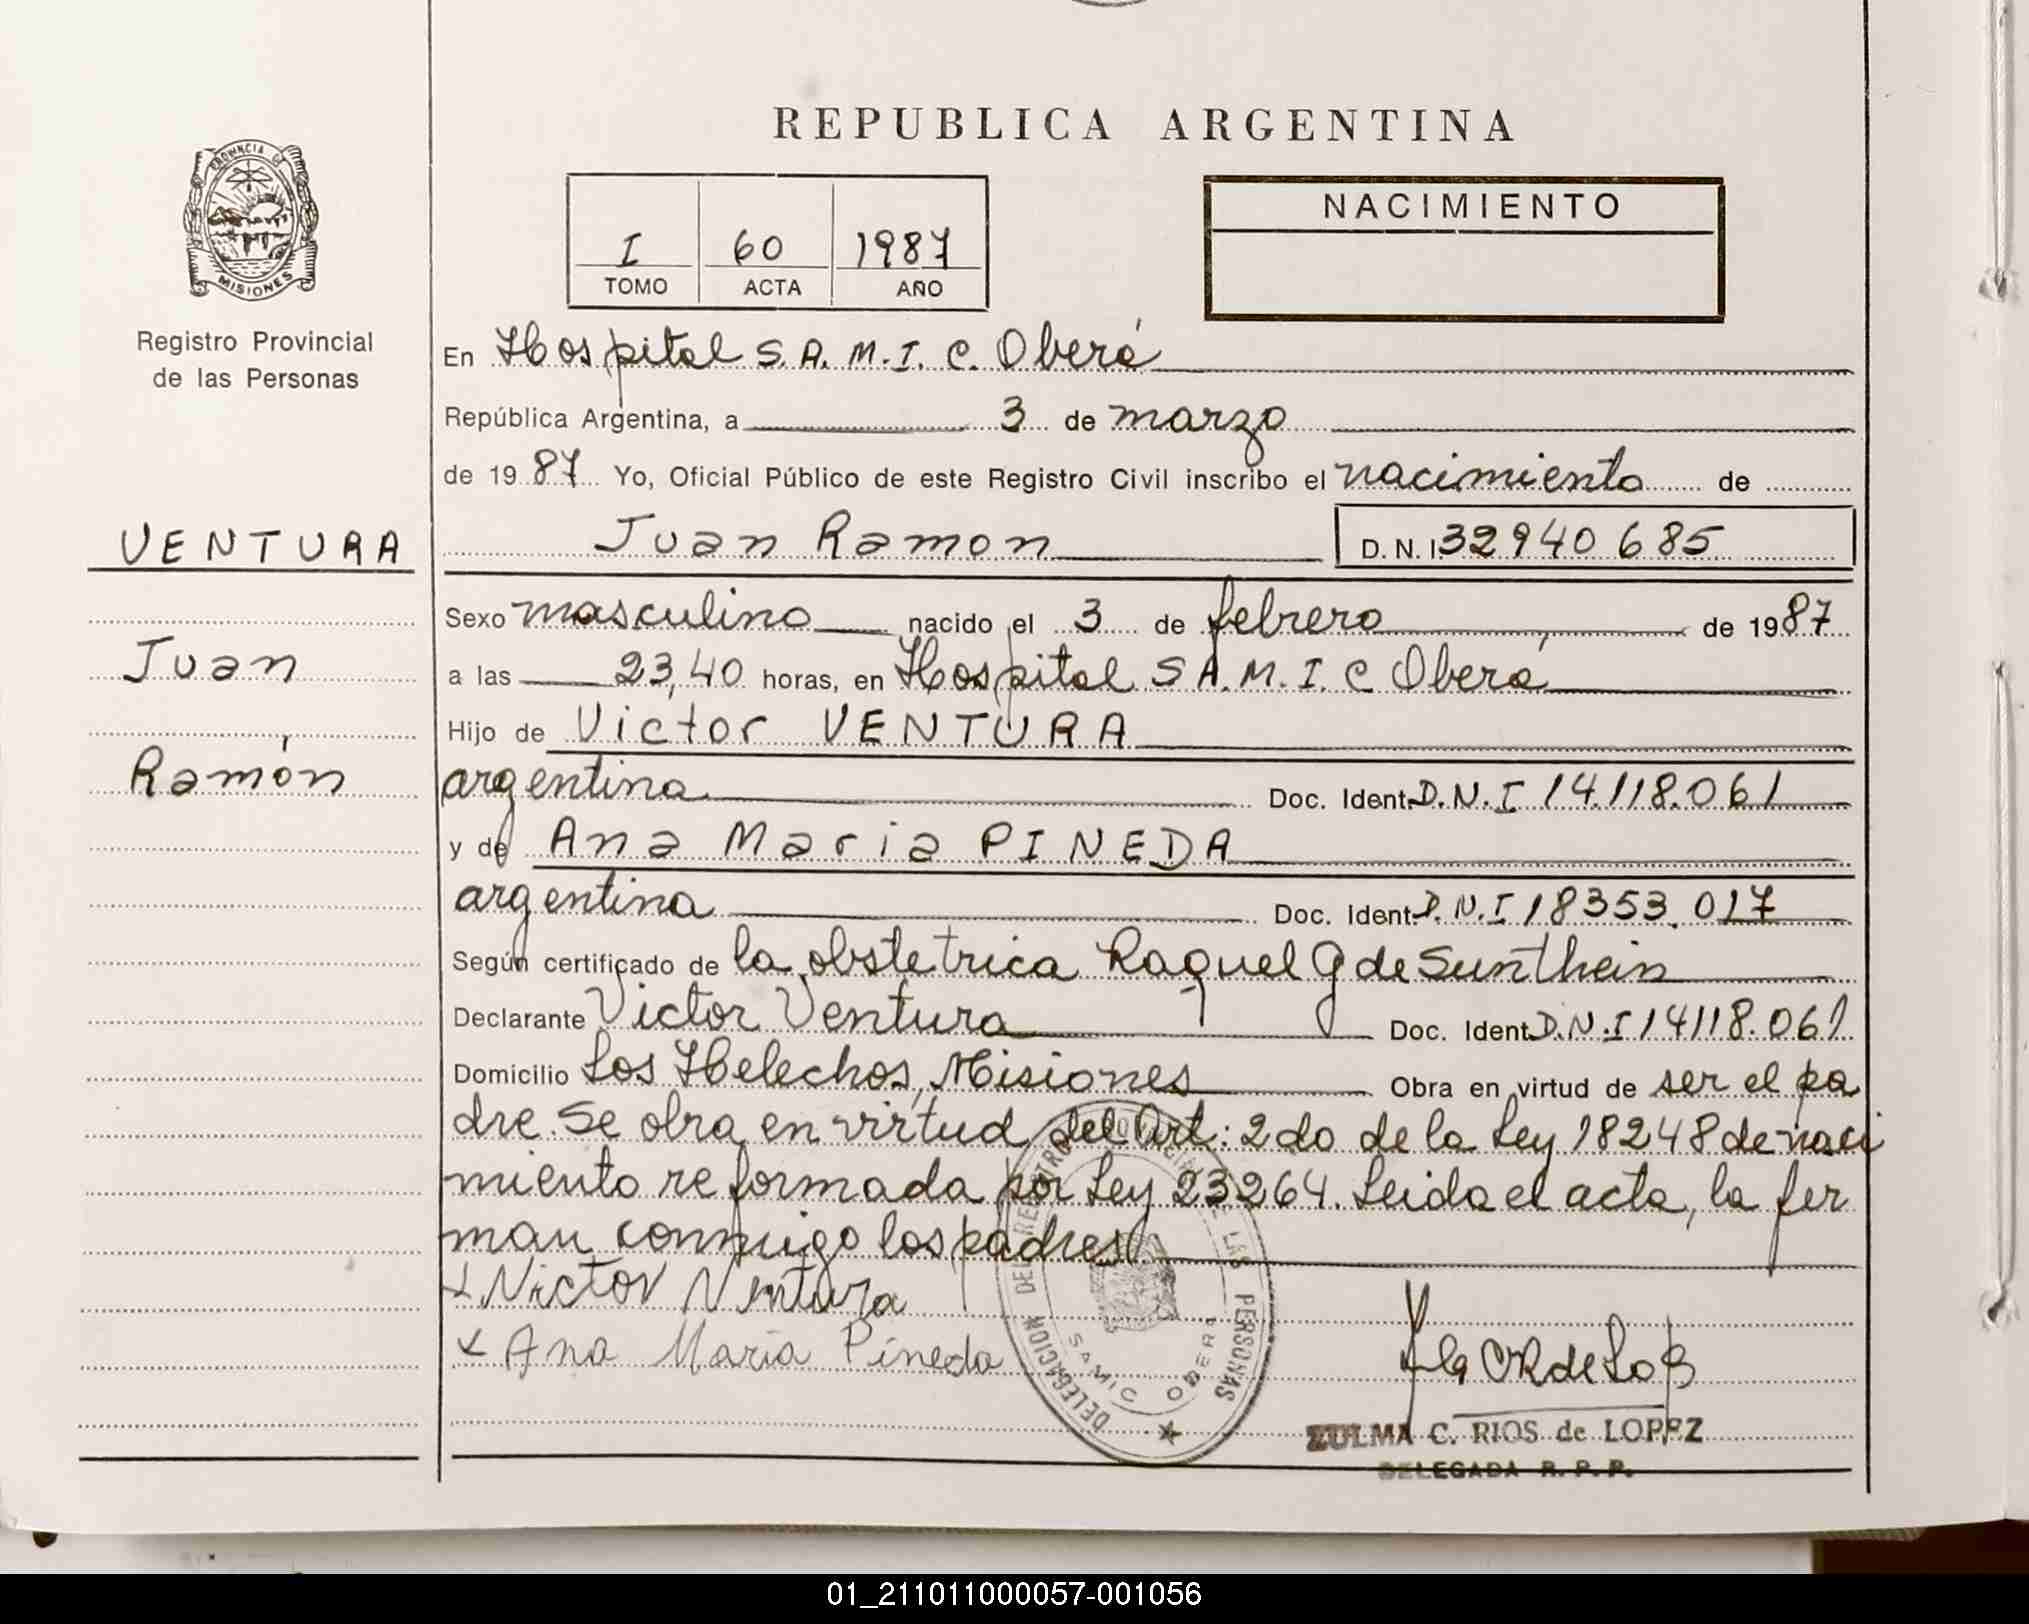 REPUBLICA ARGENTINA
PROVINCIA DE
MISIONES
Registro Provincial
de las Personas
I 60 1987
TOMO ACTA AÑO
NACIMIENTO
En Hospital S.A.M.I.C. Oberá
República Argentina, a 3 de marzo
de 1987 Yo, Oficial Público de este Registro Civil inscribo el nacimiento de
VENTURA
Juan
Ramón
Juan Ramon D.N.I 32940685
Sexo masculino nacido el 3 de febrero de 1987
a las 23,40 horas, en Hospital S A.M.I.C Oberá
Hijo de Victor VENTURA
argentina Doc. Ident. D.N.I 14.118.061
y de Ana Maria PINEDA
argentina Doc. Ident. D.N.I 18353.017
Según certificado de la obstetrica Raquel G de Sunthein
Declarante Victor Ventura Doc. Ident D.N.I 14118.061
Domicilio Los Helechos, Misiones Obra en virtud de ser el pa
dre. Se obra en virtud del Art: 2do de la Ley 18248 de naci
miento reformada por Ley 23264. Leida el acta, la fir
man conmigo los padres
x Victor Ventura
x Ana María Pineda
DELEGACION DEL REGISTRO PROVINCIAL DE LAS PERSONAS
SAMIC OBERA
ZULMA C. RIOS de LOPEZ
DELEGADA R. P. P.
01_211011000057-001056